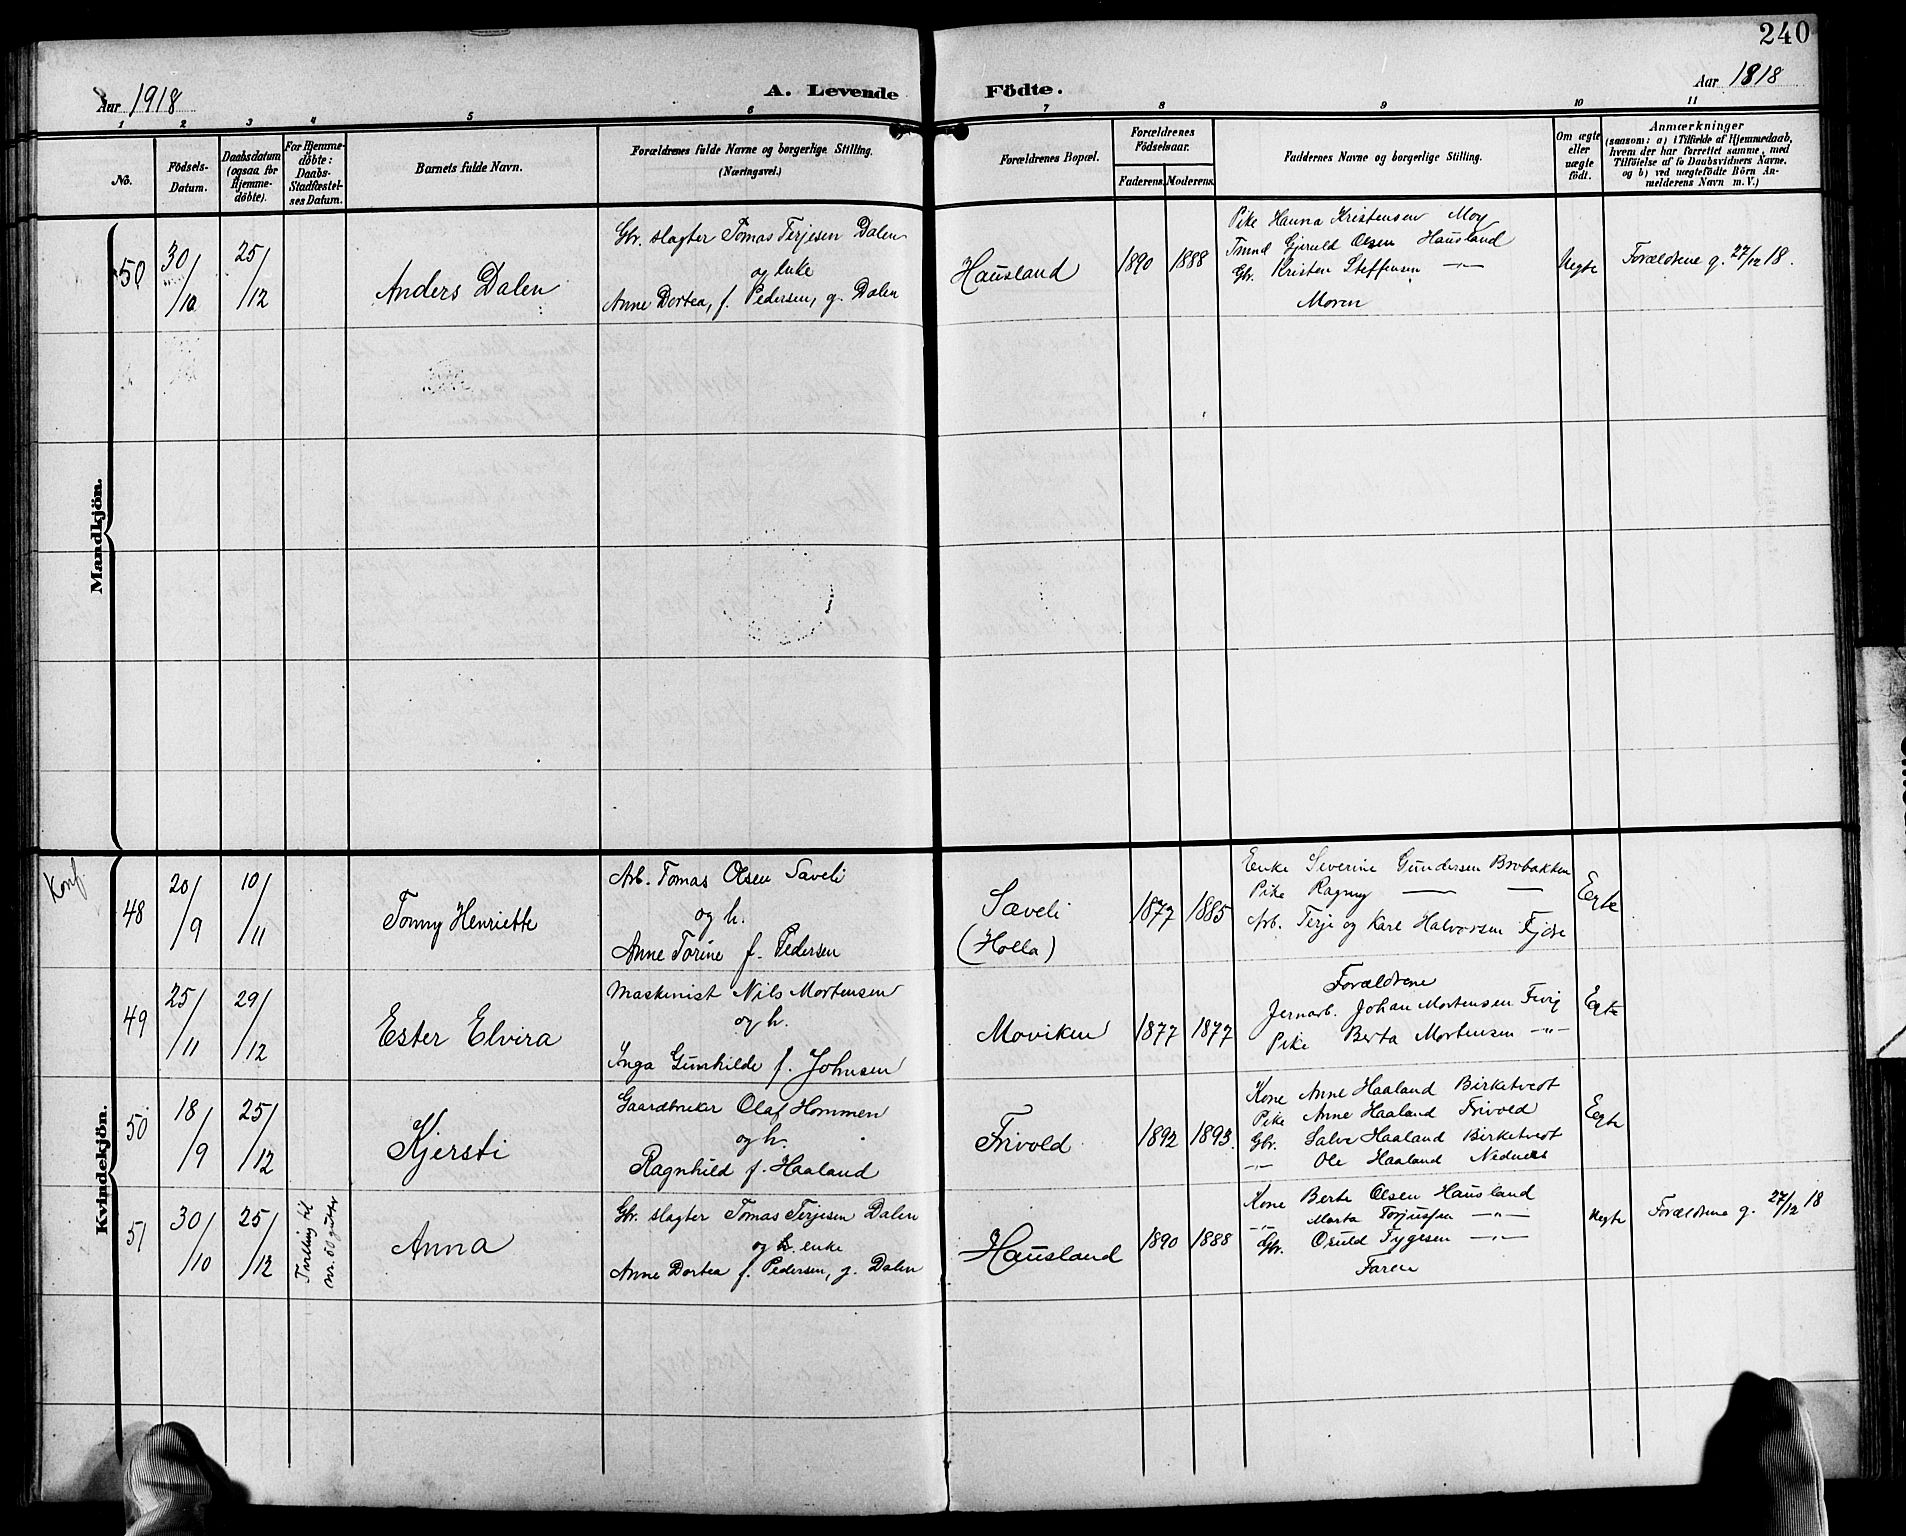 240
Aar 1918
A. Levende Födte.
Aar 1818
1 2 3 4 5 6 7 8 9 10 11
No.
Födsels-Datum.
Daabsdatum (ogsaa for Hjemme-döbte).
For Hjemme-döbte: Daabs-Stadfæstelses Datum.
Barnets fulde Navn.
Forældrenes fulde Navne og borgerlige Stilling. (Næringsvei.)
Forældrenes Bopæl.
Forældrenes Födselsaar.
Faderens. Moderens.
Faddernes Navne og borgerlige Stilling.
Om ægte eller uægte födt.
Anmærkninger
(saasom: a) i Tilfælde af Hjemmedaab,
hvem der har forrettet samme, med
Tilföielse af to Daabsvidners Navne,
og b) ved uægtefödte Börn An-
melderens Navn m. V.)
Mandkjön.
50 30/10 25/12
Anders Dalen
Gbr. slagter Tomas Terjesen Dalen
og enke
Anne Dortea, f. Pedersen, g. Dalen
Hausland
1890 1888
Pike Hanna Kristensen Moy
Gjeruld Olsen Hausland
Gbr. Kristen Steffensen —"—
Moren
Uegte
Forældrene g. 27/12 18.
Kvindekjön.
Konf.
48 20/9 10/11
Tonny Henriette
Arb. Tomas Olsen Saveli
og h.
Anne Torine f. Pedersen
Sæveli
(Holla)
1877 1885
Enke Severine Gundersen Brobakken
Pike Ragny — —
Arb. Terje og Karl Halvorsen Fjose
Egte
49 25/11 29/12
Ester Elvira
Maskinist Nils Mortensen
og h.
Inga Gunhilde f. Johnsen
Moviken
1877 1877
Forældrene
Jernarb. Johan Mortensen Fevig
Pike Berta Mortensen —"—
Egte
50 18/9 25/12
Kjersti
Gaardbruker Olaf Hommen
og h.
Ragnhild f. Haaland
Frivold
1892 1893.
Kone Anne Haaland Birketvedt
Pike Anne Haaland Frivold
Gbr. Salve Haaland Birketvedt
—"— Ole Haaland Nedenes
Egte
51 30/10 25/12
Tvilling til
nr. 50 gutter
Anna
Gbr. slagter Tomas Terjesen Dalen
og h. enke
Anne Dortea f. Pedersen, g. Dalen
Hausland
1890 1888
Kone Berte Olsen Hausland
—"— Marta Terjussen —"—
Gbr. Osuld Tygesen —"—
Faren
Uegte
Forældrene g. 27/12 18